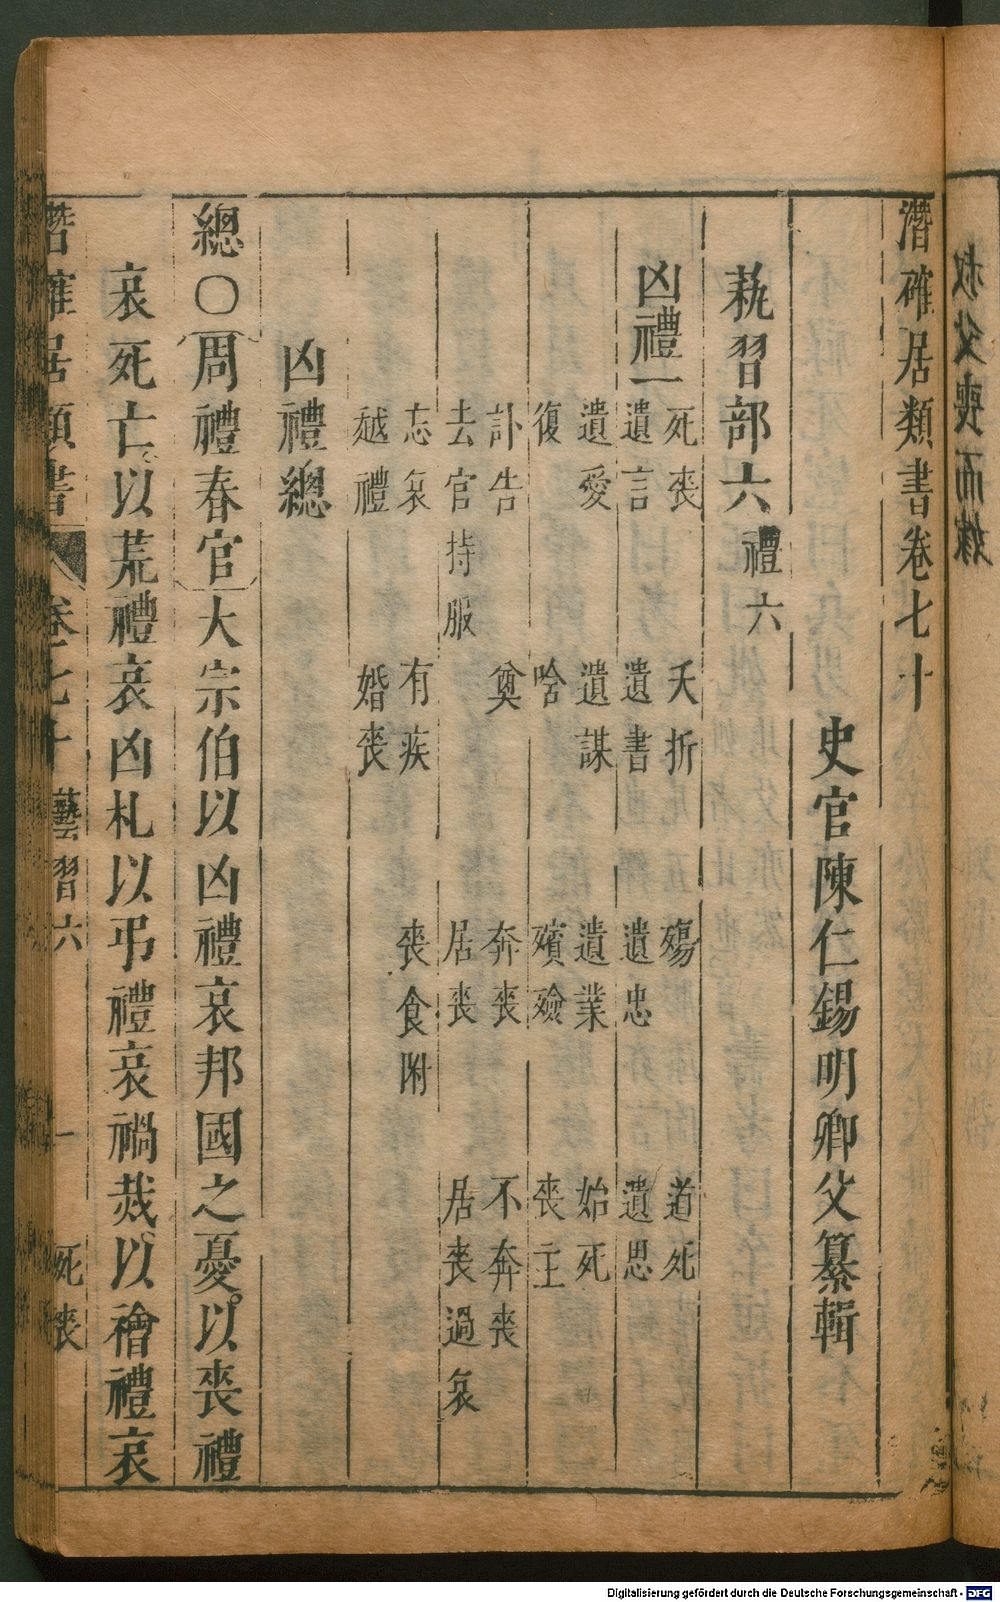 叔父喪而嫁
潛確居類書卷七十
史官陳仁錫明卿父纂輯
蓺習部六 禮六
凶禮一
死喪 夭折 殤 道死
遺言 遺書 遺忠 遺思
遺愛 遺謀 遺業 始死
復 唅 殯殮 喪主
訃告 奠 奔喪 不奔喪
去官持服 居喪 居喪過哀
忘哀 有疾 喪食附
越禮 婚喪
凶禮總
總○周禮春官大宗伯以凶禮哀邦國之憂以喪禮
哀死亡以荒禮哀凶札以弔禮哀禍烖以禬禮哀
潛確居類書 卷七十 藝習六 一 死喪
Digitalisierung gefördert durch die Deutsche Forschungsgemeinschaft - DFG